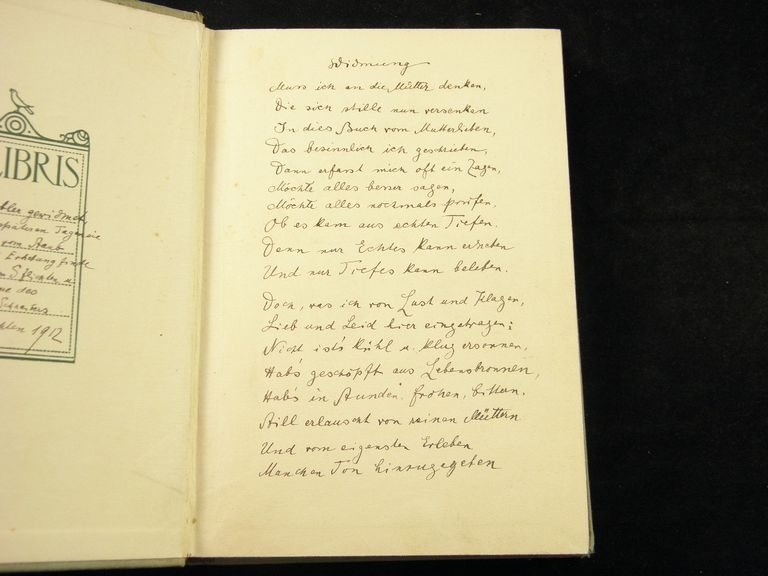 LIBRIS
gewidmet,
späteren Tagen sie
vom Staub
Erhebung finde
des
1912
Widmung
Muss ich an die Mütter denken,
Die sich stille nun versenken
In dies Buch vom Mutterlieben,
Das besinnlich ich geschrieben,
Dann erfasst mich oft ein Zagen,
Möchte alles besser sagen,
Möchte alles nochmals prüfen,
Ob es kam aus echten Tiefen.
Denn nur Echtes kann erheben
Und nur Tiefes kann beleben.
Doch, was ich von Lust und Klagen,
Lieb und Leid hier eingetragen:
Nicht ist's kühl u. klug ersonnen,
Hab's geschöpft aus Lebensbronnen,
Hab's in Stunden, frohen, bittern,
Still erlauscht von reinen Müttern
Und vom eigensten Erleben
Manchen Ton hinzugegeben